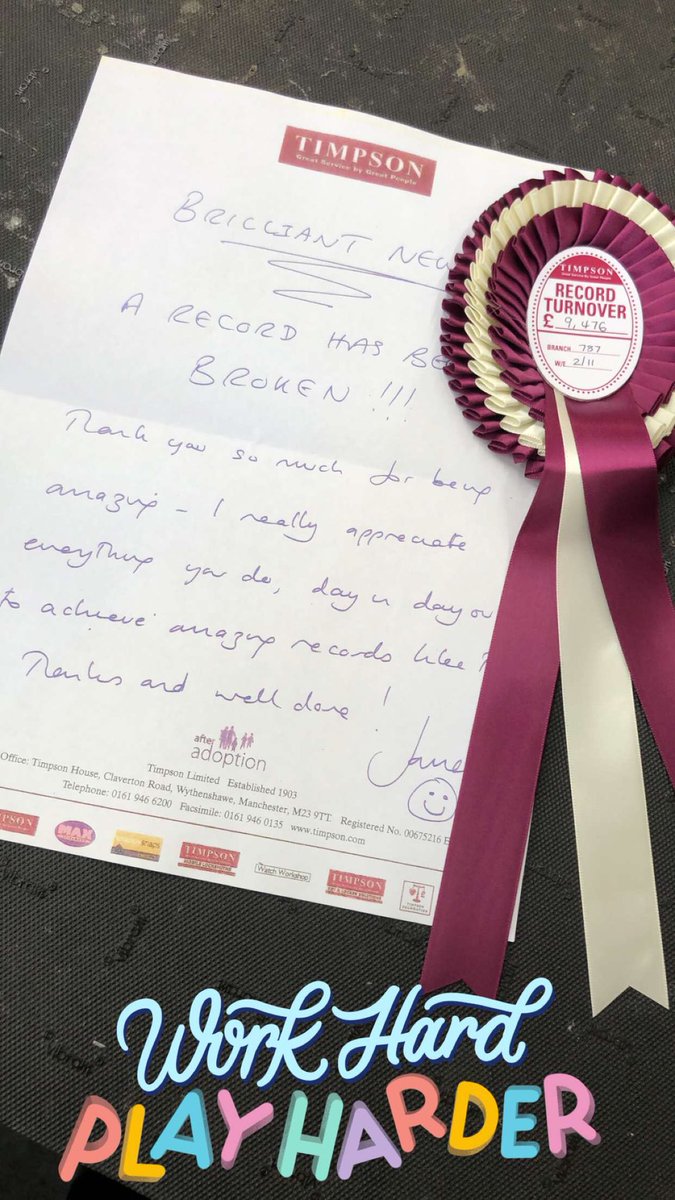 TIMPSON
Great Service by Great People
BRILLIANT NEW
A RECORD HAS BE
BROKEN !!!
Thank you so much for being
amazing - I really appreciate
everything you do, day in day ou
to achieve amazing records like
Thanks and well done !
Jane
after
adoption
Timpson Limited Established 1903
Office: Timpson House, Claverton Road, Wythenshawe, Manchester, M23 9TT. Registered No. 00675216 E
Telephone: 0161 946 6200 Facsimile: 0161 946 0135 www.timpson.com
MAX
snaps
TIMPSON
Watch Workshop
TIMPSON
TIMPSON
FOUNDATION
TIMPSON
Great Service By Great People
RECORD
TURNOVER
£ 9,476
BRANCH 787
W/E 2/11
Work Hard
PLAY HARDER